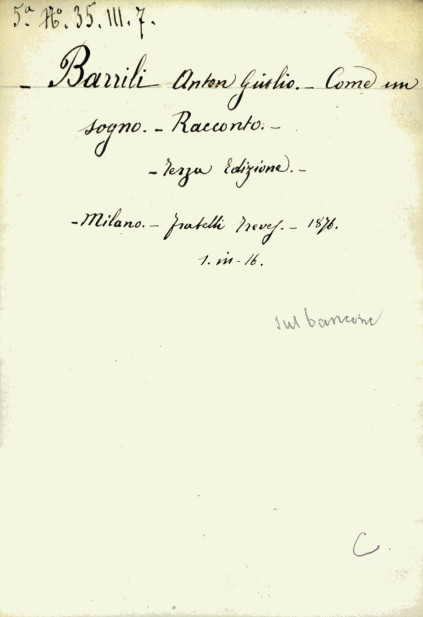 5ª Nº. 35. III. 7.
- Barrili Anton Giulio. - Come un
sogno. - Racconto. -
- Terza Edizione. -
- Milano. - Fratelli Treves. - 1876.
1. in - 16.
sul bancone
C